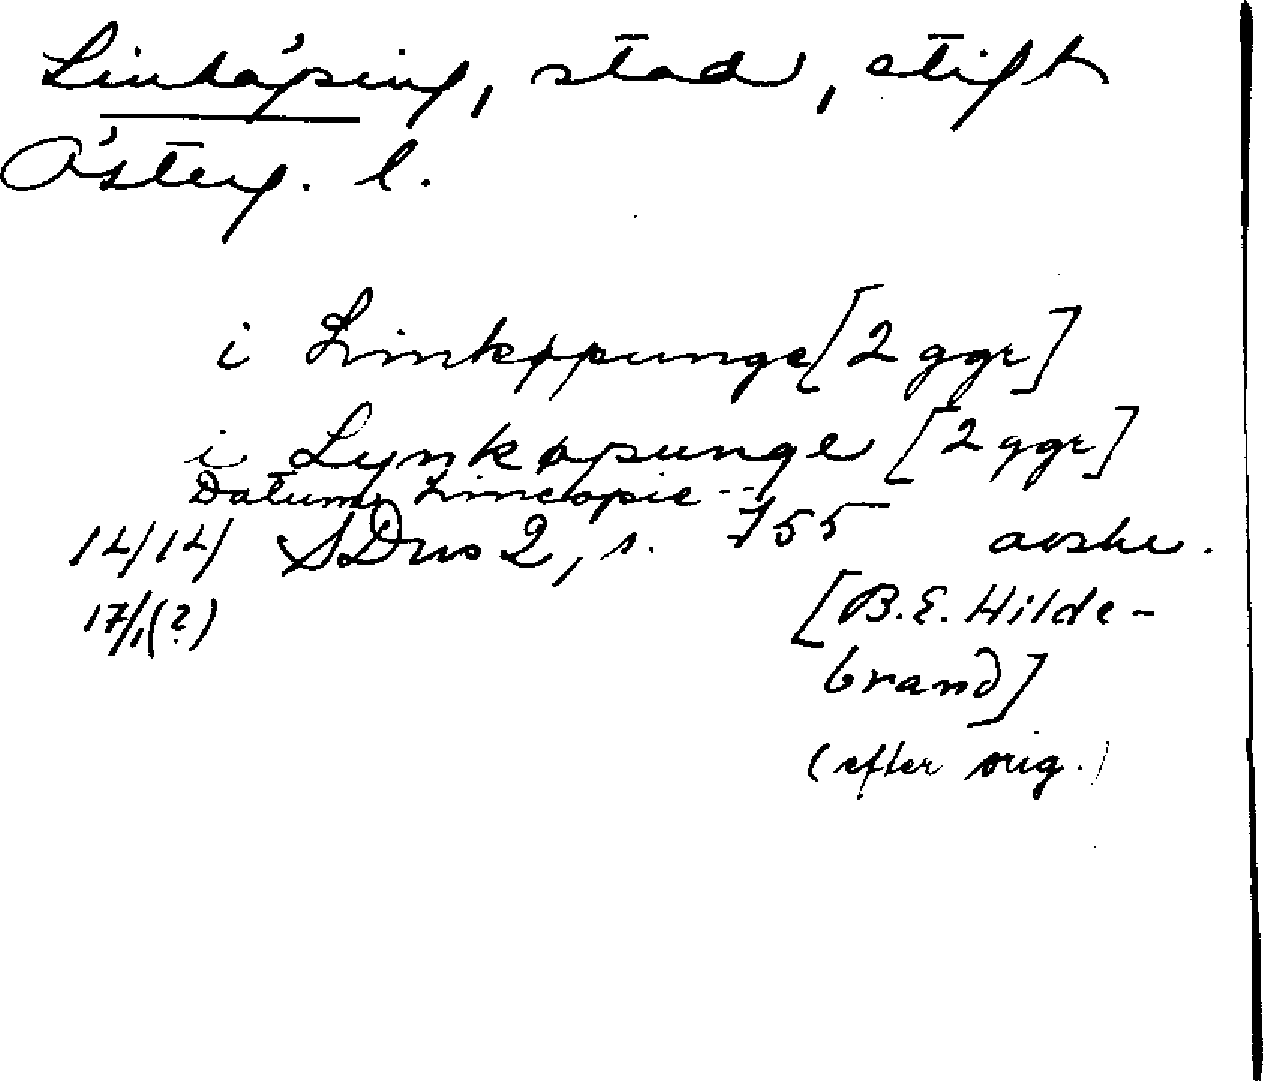 Linköping, stad, stift
Österg. l.
i Linkøpunge [2 ggr]
i Lynkøpunge [2 ggr]
Datum Lincopie --
1414 SDns 2, s. 755 avskr.
17/1(?) [B.E. Hilde-
brand]
(efter orig.)